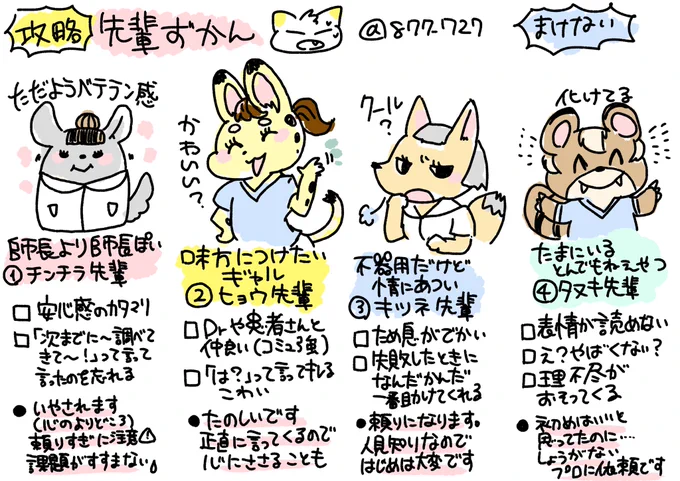 攻略
先輩ずかん
@877-727
まけない
ただようベテラン感
師長より師長ぽい
①チンチラ先輩
□安心感のカタマリ
□「次までに〜調べて
きて〜!」って言って
言ったのを忘れる
●いやされます
(心のよりどころ)
頼りすぎに注意⚠
課題がすすまない。
かわいい?
味方につけたい
ギャル
②ヒョウ先輩
□Drや患者さんと
仲良い(コミュ力強)
□「は?」って言ってキレる
こわい
●たのしいです
正直に言ってくるので
心にささることも
クール?
不器用だけど
情にあつい
③キツネ先輩
□ため息がでかい
□失敗したときに
なんだかんだ
一番助けてくれる
●頼りになります。
人見知りなので
はじめは大変です
化けてる
たまにいる
とんでもねぇやつ
④タヌキ先輩
□表情が読めない
□え?やばくない?
□理不尽が
おそってくる
●初めはいいと
思ってたのに....
しょうがない
プロに依頼です